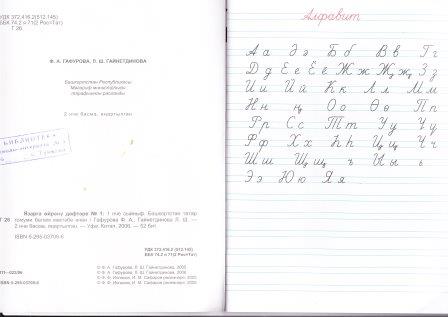 УДК 372.416.2 (512.145)
ББК 74.2 я 71(2 Рос=Тат)
Г 26
Ф. А. ГАФУРОВА, Л. Ш. ГАЙНЕТДИНОВА
Башкортстан Республикасы
Мәгариф министрлыгы
тарафыннан расланды
2 нче басма, яңартылган
БИБЛИОТЕКА
Язарга өйрәнү дәфтәре № 1: 1 нче сыйныф. Башкортстан татар
гомуми белем мәктәбе өчен / Гафурова Ф. А., Гайнетдинова Л. Ш. —
Г 26 2 нче басма, яңартылган. — Уфа: Китап, 2006. — 52 бит.
ISBN 5-295-03709-6
УДК 372.416.2 (512.145)
ББК 74.2 я 71(2 Рос=Тат)
ISBN 5-295-03709-6
© Ф. А. Гафурова, Л. Ш. Гайнетдинова, 2005
© Ф. А. Гафурова, Л. Ш. Гайнетдинова, 2006
Алфавит
Аа Әә Бб Вв Гг
Дд Ее Ёё Жж Җҗ Зз
Ии Йй Кк Лл Мм
Нн ң Оо Өө Пп
Рр Сс Тт Уу Үү
Фф Хх Һһ Цц Чч
Шш Щщ ъ Ыы ь
Ээ Юю Яя